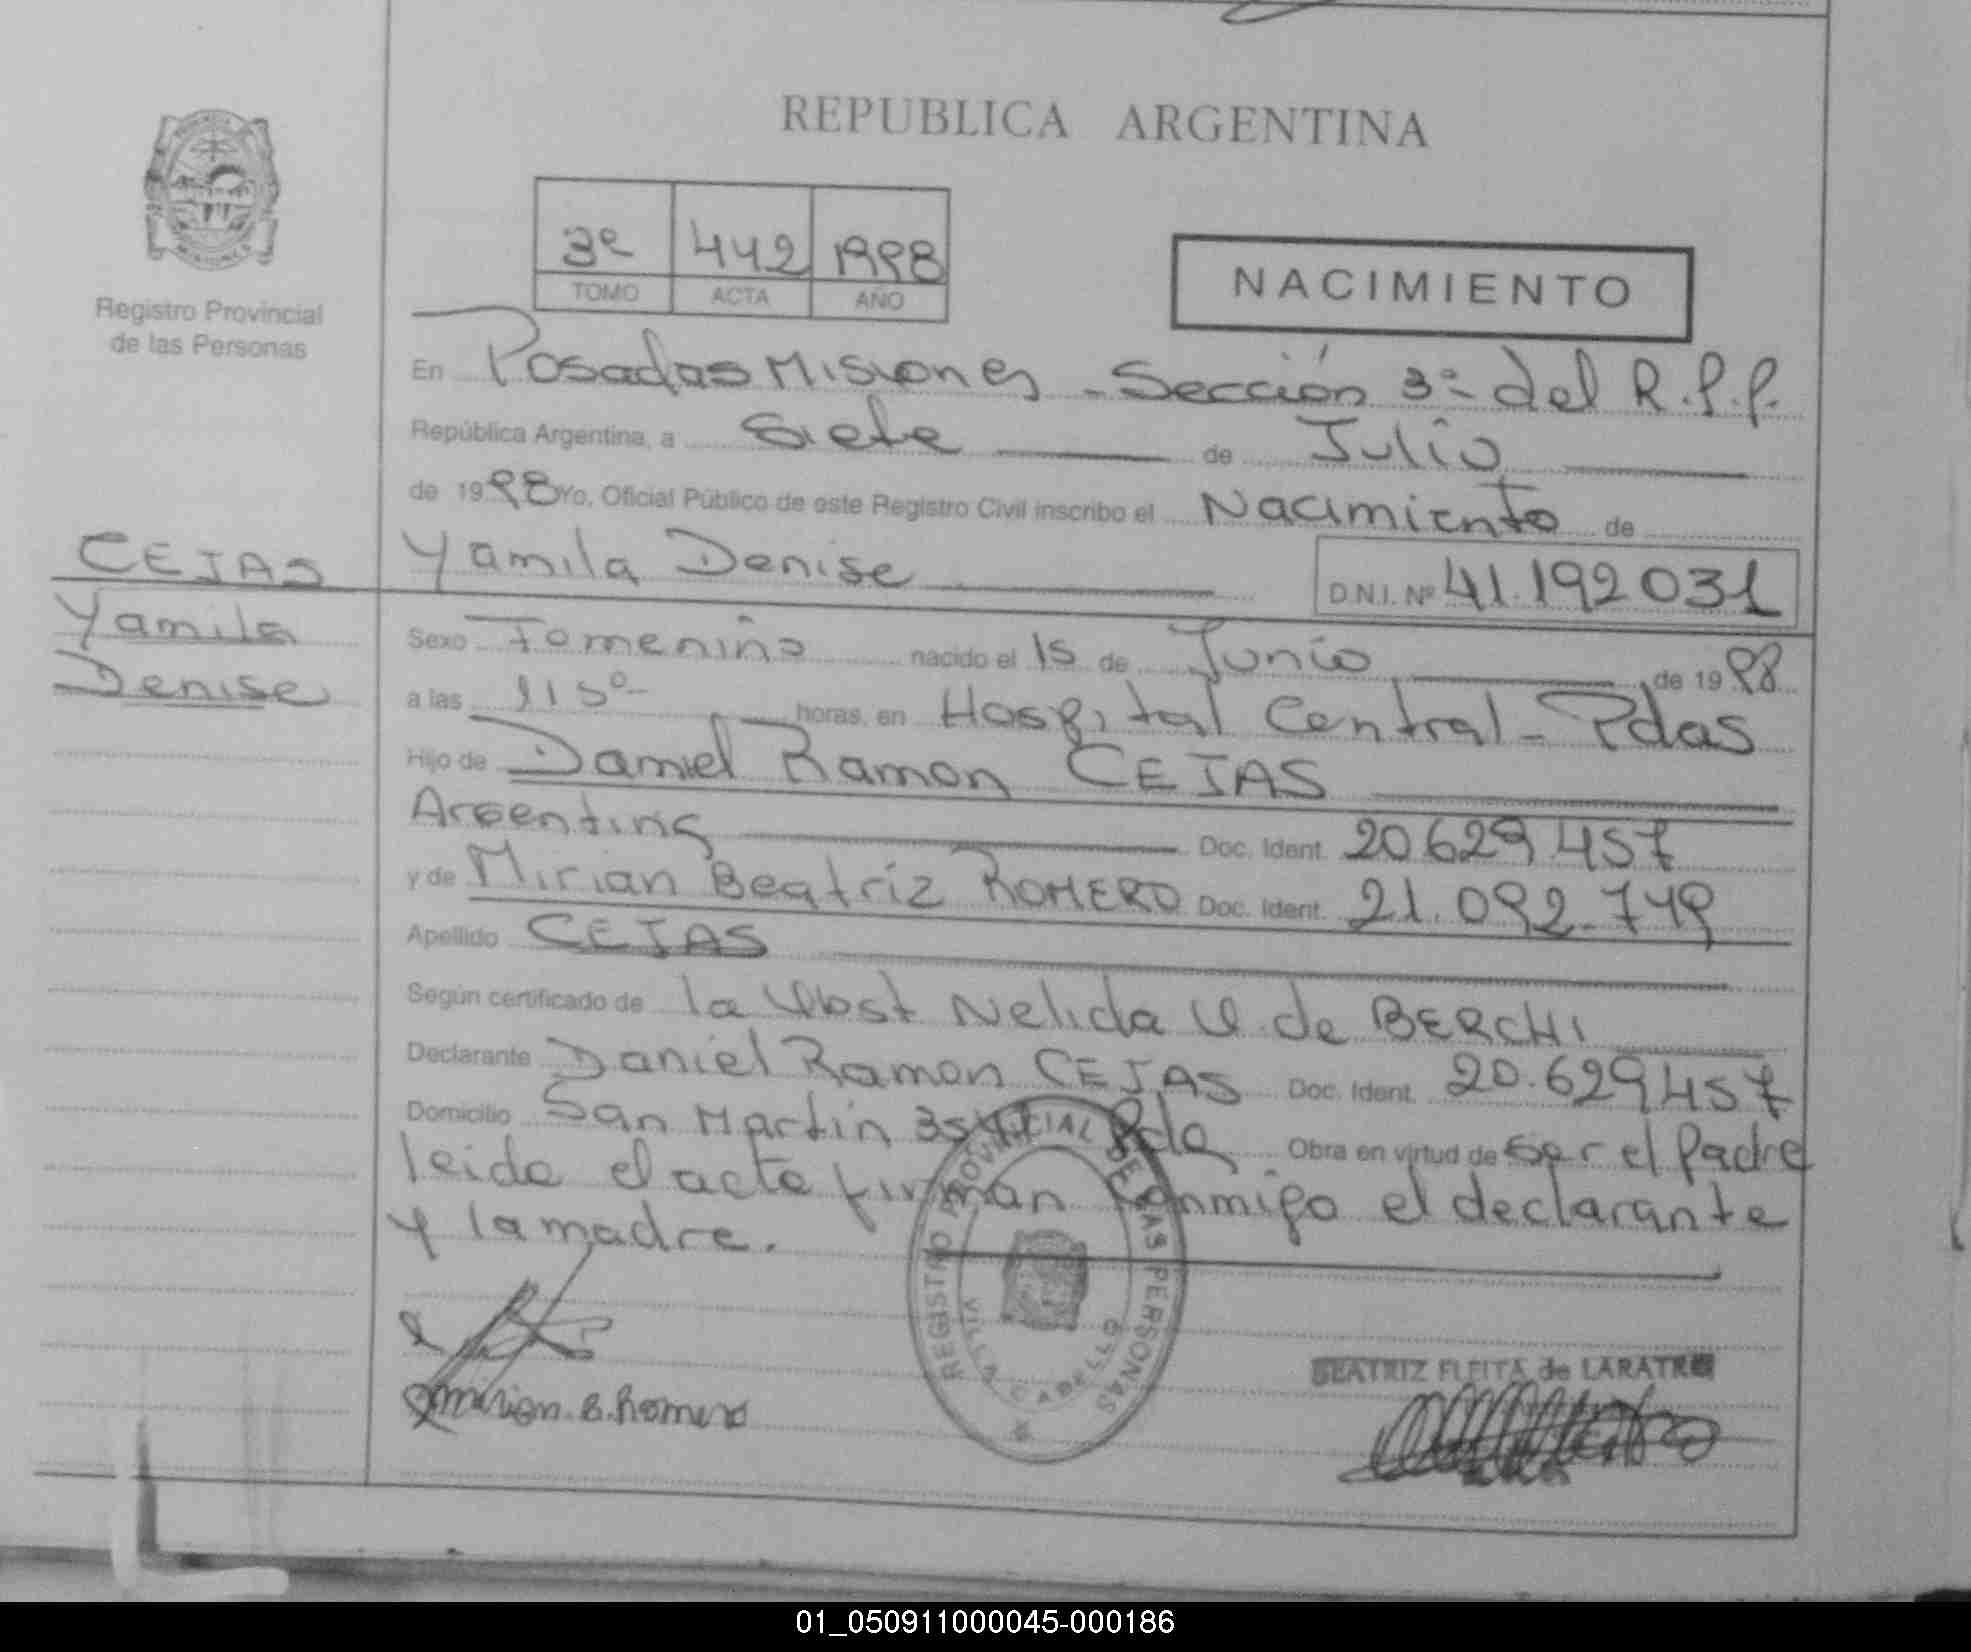 REPUBLICA ARGENTINA
3º 442 1998
TOMO ACTA AÑO
NACIMIENTO
Registro Provincial
de las Personas
En Posadas Misiones - Sección 3º del R.P.P.
República Argentina, a siete de Julio
de 1998 Yo, Oficial Público de este Registro Civil inscribo el Nacimiento de
CEJAS
Yamila
Denise
Yamila Denise D.N.I. Nº 41.192031
Sexo Femenino nacido el 15 de Junio de 1998
a las 1150 horas, en Hospital Central - Pdas
Hijo de Daniel Ramon CEJAS
Argentina Doc. Ident. 20.629.457
y de Mirian Beatriz ROMERO Doc. Ident. 21.092.749
Apellido CEJAS
Según certificado de la Obst Nelida V. de BERCHI
Declarante Daniel Ramon CEJAS Doc. Ident. 20.629457
Domicilio San Martin Pda Obra en virtud de ser el Padre
leida el acta firman conmigo el declarante
y la madre.
REGISTRO PROVINCIAL DE LAS PERSONAS
VILLA CABELLO
Mirian B. Romero
BEATRIZ FLEITA de LARATRO
01_050911000045-000186